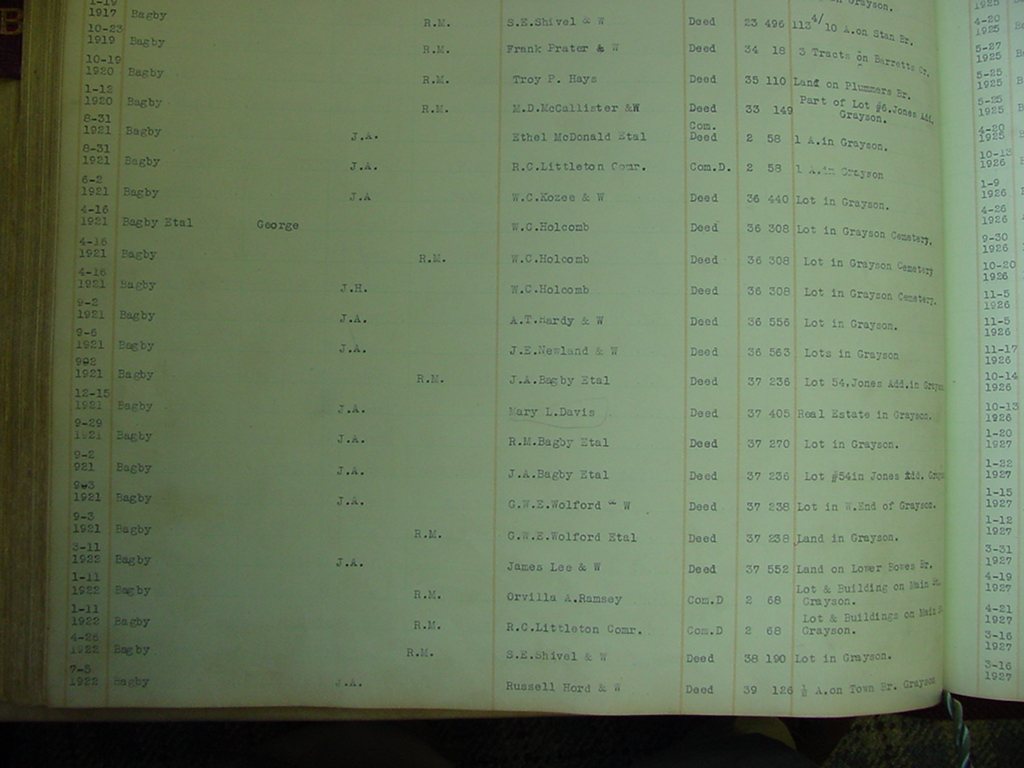 1-19
1917 Bagby R.M. S.E.Shivel & W Deed 23 496 113 4/10 A.on Stan Br.
10-23
1919 Bagby R.M. Frank Prater & W Deed 34 18 3 Tracts on Barretts Cr.
10-19
1920 Bagby R.M. Troy P. Hays Deed 35 110 Land on Plummers Br.
1-12
1920 Bagby R.M. M.D.McCallister &W Deed 33 149 Part of Lot #6.Jones Add. Grayson.
8-31
1921 Bagby J.A. Ethel McDonald Etal Com. Deed 2 58 1 A.in Grayson.
8-31
1921 Bagby J.A. R.C.Littleton Comr. Com.D. 2 58 1 A.in Grayson
6-2
1921 Bagby J.A W.C.Kozee & W Deed 36 440 Lot in Grayson.
4-16
1921 Bagby Etal George W.C.Holcomb Deed 36 308 Lot in Grayson Cemetery.
4-16
1921 Bagby R.M. W.C.Holcomb Deed 36 308 Lot in Grayson Cemetery
4-16
1921 Bagby J.H. W.C.Holcomb Deed 36 308 Lot in Grayson Cemetery.
9-2
1921 Bagby J.A. A.T.Hardy & W Deed 36 556 Lot in Grayson.
9-6
1921 Bagby J.A. J.E.Newland & W Deed 36 563 Lots in Grayson
1921 Bagby R.M. J.A.Bagby Etal Deed 37 236 Lot 54,Jones Add.in Grayson
12-15
1921 Bagby J.A. Mary L.Davis Deed 37 405 Real Estate in Grayson.
9-29
1921 Bagby J.A. R.M.Bagby Etal Deed 37 270 Lot in Grayson.
9-2
921 Bagby J.A. J.A.Bagby Etal Deed 37 236 Lot #54in Jones Add.
1921 Bagby J.A. G.W.E.Wolford - W Deed 37 238 Lot in W.End of Grayson.
9-3
1921 Bagby R.M. G.W.E.Wolford Etal Deed 37 238 Land in Grayson.
3-11
1922 Bagby J.A. James Lee & W Deed 37 552 Land on Lower Bowes Br.
1-11
1922 Bagby R.M. Orvilla A.Ramsey Com.D 2 68 Lot & Building on Main St. Grayson.
1-11
1922 Bagby R.M. R.C.Littleton Comr. Com.D 2 68 Lot & Buildings on Main St Grayson.
4-26
1922 Bagby R.M. S.E.Shivel & W Deed 38 190 Lot in Grayson.
7-5
1922 Bagby J.A. Russell Hord & W Deed 39 126 ½ A.on Town Br. Grayson
1925
4-20
1925
5-27
1925
5-25
1925
5-25
1925
4-20
1925
10-13
1926
1-9
1926
4-26
1926
9-30
1926
10-20
1926
11-5
1926
11-5
1926
11-17
1926
10-14
1926
10-13
1926
1-20
1927
1-22
1927
1-15
1927
1-12
1927
3-31
1927
4-19
1927
4-21
1927
3-16
1927
3-16
1927